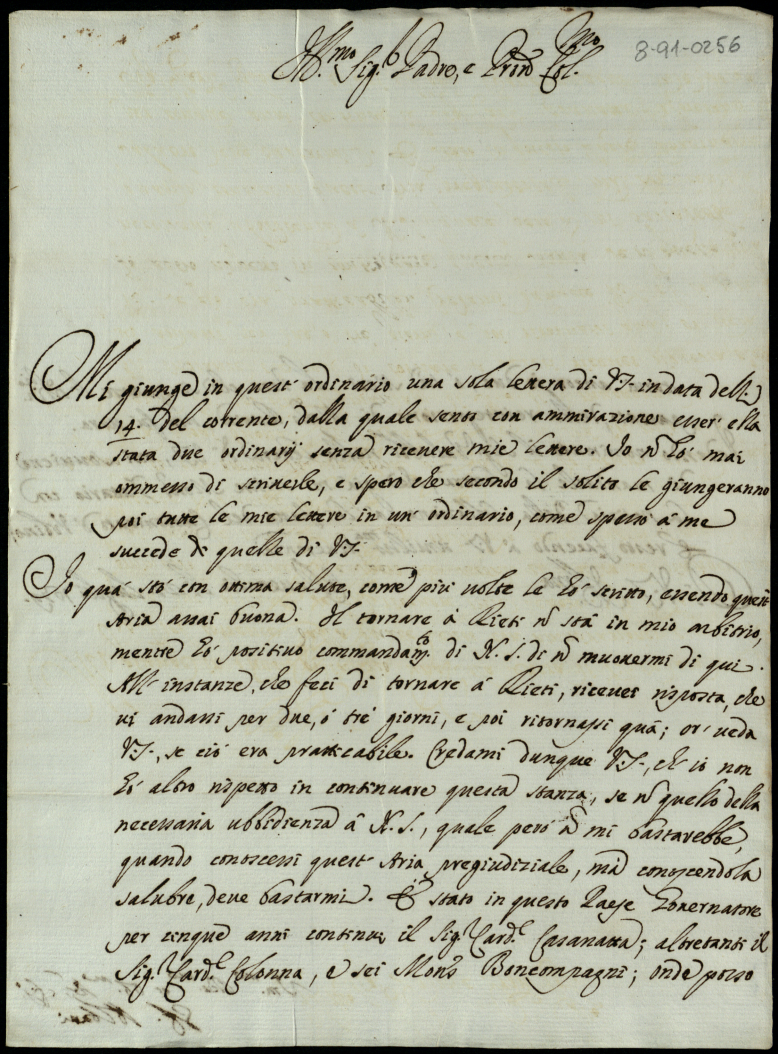 Ill.mo Sig.r Padre, e Pron Col.mo
8-91-0256
Mi giunge in quest' ordinario una sola lettera di VS. in data delli
14. del corrente, dalla quale sento con ammirazione esser' ella
stata due ordinarij senza ricevere mie lettere. Io ñ hò mai
ommesso di scriverle, e spero che secondo il solito le giungeranno
poi tutte le mie lettere in un' ordinario, come spesso à me
succede di quelle di VS.
Io quà stò con ottima salute, come più volte le hò scritto, essendo quest'
Aria assai buona. Il tornare à Rieti ñ stà in mio arbitrio,
mentre hò positivo commandam.to di N. S. di ñ muovermi di qui.
All' instanze, che feci di tornare à Rieti, ricevei risposta, che
vi andassi per due, ò trè giorni, e poi ritornassi quà; or' veda
VS., se ciò era pratticabile. Credami dunque VS., ch' io non
hò altro rispetto in continuare questa stanza, se ñ quello della
necessaria ubbidienza à N. S., quale però ñ mi bastarebbe,
quando conoscessi quest' Aria pregiudiziale, mà conoscendola
salubre, deve bastarmi. È stato in questo Paese Governatore
per cinque anni continui il Sig.r Card.l Casanatta; altretanti il
Sig.r Card.l Colonna, e sei Mons.r Boncompagni; onde posso